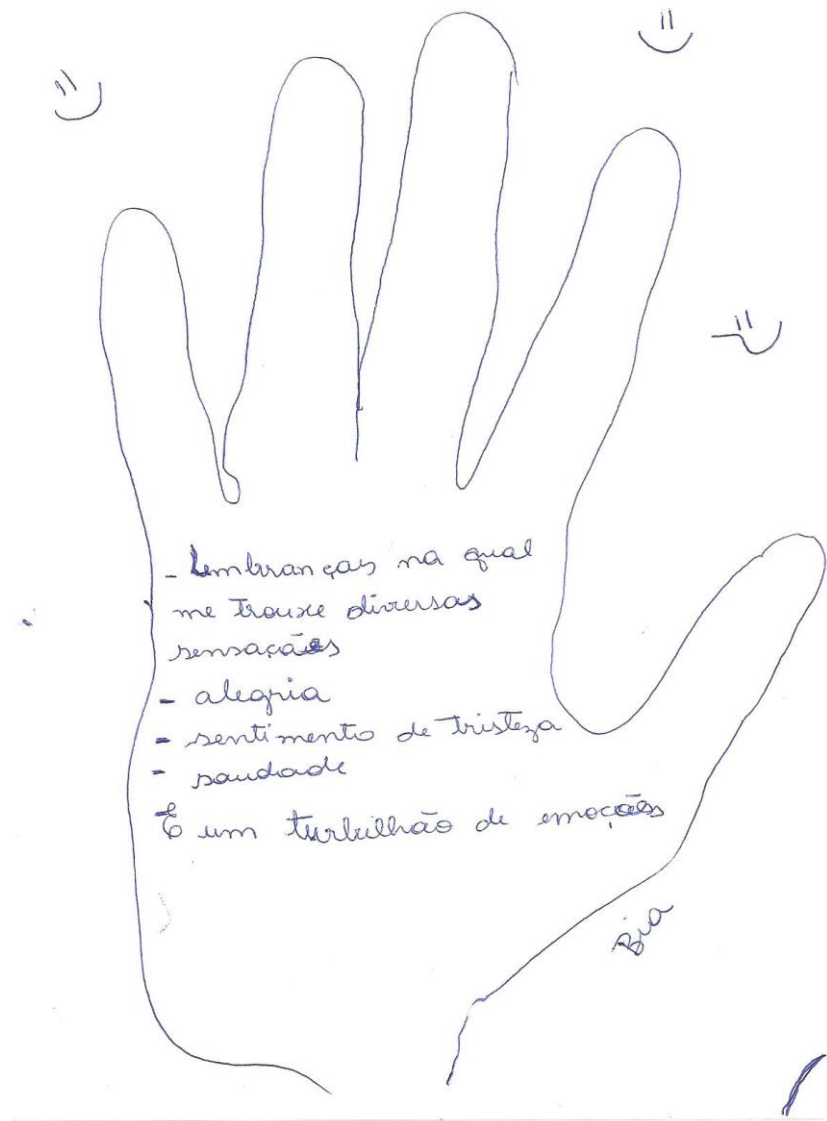 - Lembranças na qual
me trouxe diversas
sensações
- alegria
- sentimento de tristeza
- saudade
É um turbilhão de emoções
Bia